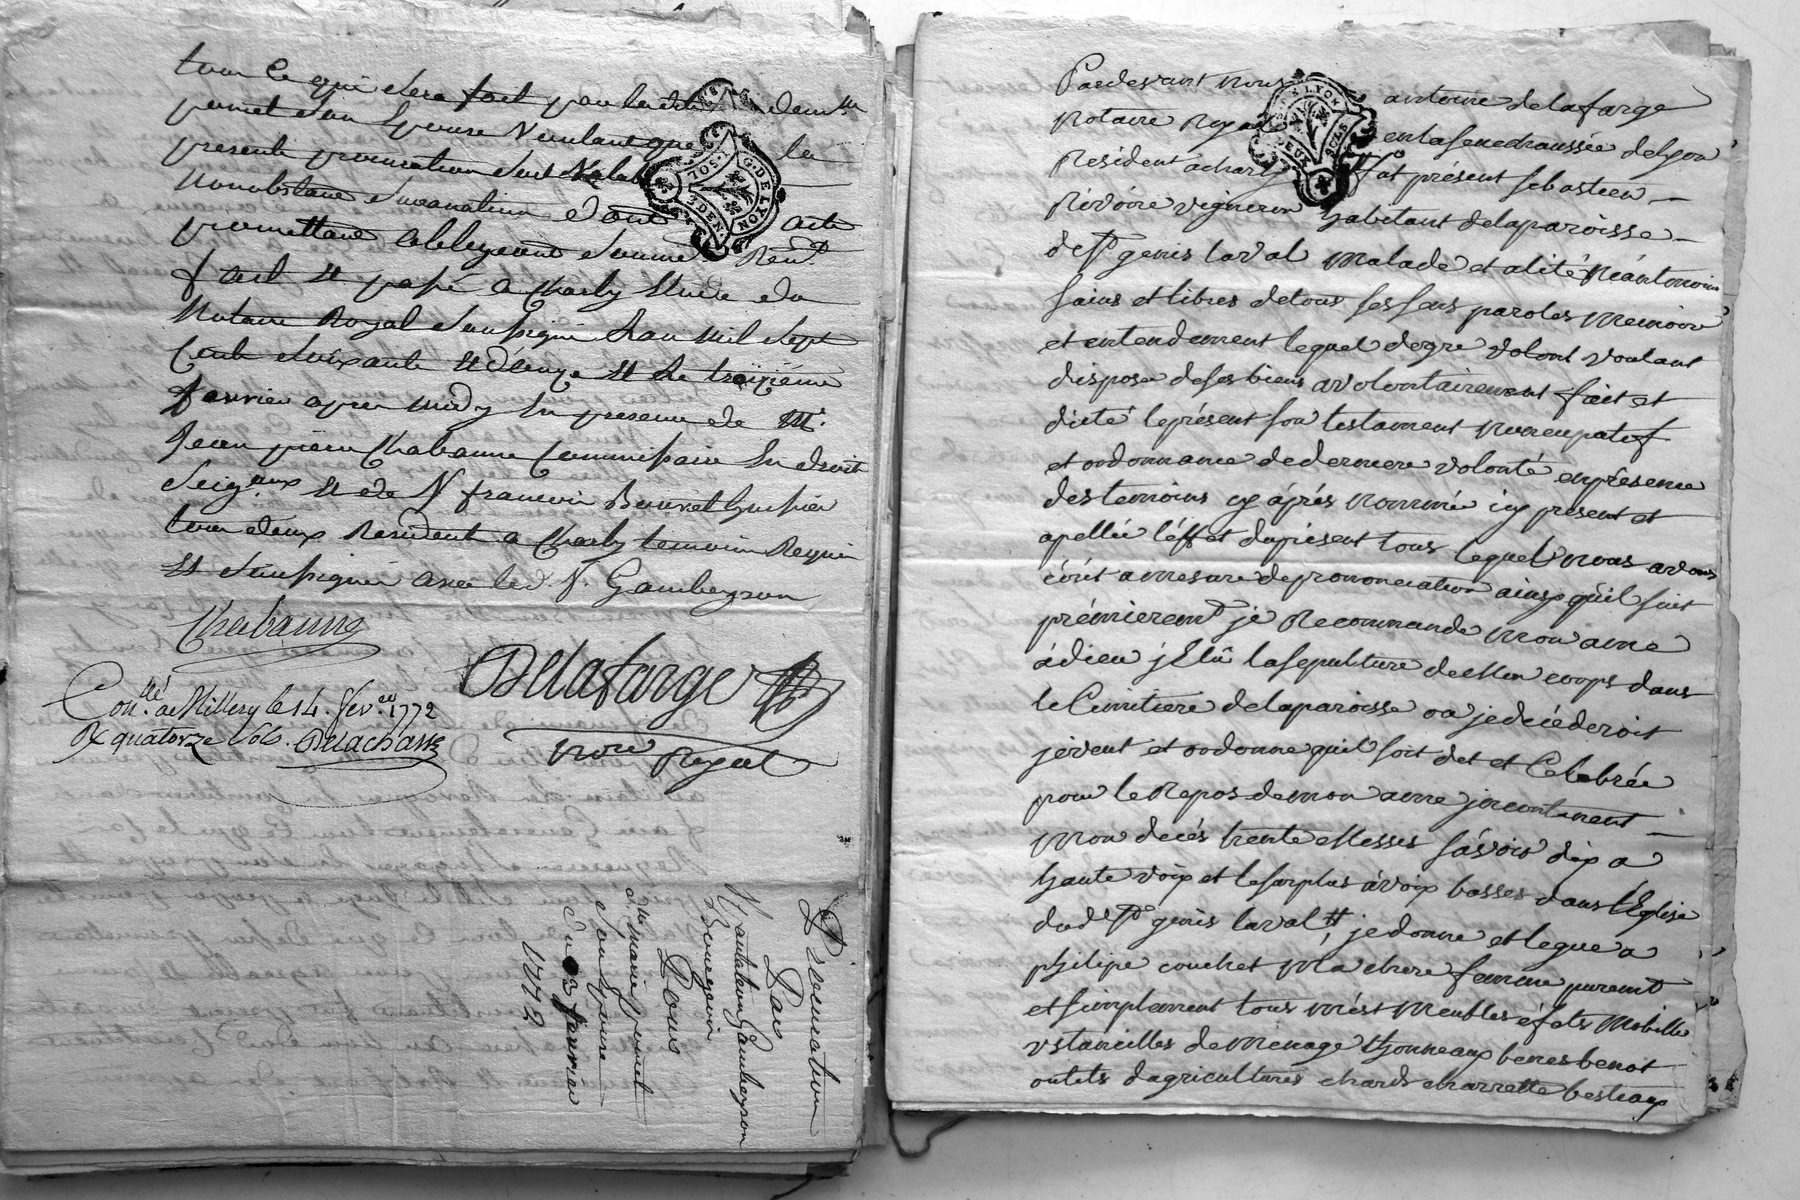 tout ce qui sera fait par lad. dem.lle
pernet son Epouse Voulant que la
presente procuration soit Valable
Nonobstant Suranation dont acte
promettant obligeant soumett. Renc.
fait et passé a Charly Etude du
Notaire Royal soussigné L'an mil sept
Cents soixante et douze et le troizieme
fevrier apres midy En presence de M.
Jean pierre Chabanne Commissaire En droit
seig.aux et de S. francois Bouvet huissier
tous deux Residents a Charly temoins Requis
et soussignés avec led. S. Gambeyson
Chabanne
Delafarge
No.re Royal
Con.llé a Millery le 14. fev.er 1772
R quatorze sols. Delachass
Procuration
Par
S. Gambeyson
Bourgeois
Pour
D.lle marie pernet
son Epouse
Du 3 fevrier
1772
G. DE LYON
2. DEN.
Pardevant nous antoine delafarge
notaire Royal en la senechaussée de lyon
Résident a charly fut présent sebastien
Rivoire vigneron habitant de la paroisse
de St genis laval malade et alité néantmoins
sains et libres de tous ses sens paroles memoire
et entendement lequel de gré volont voulant
disposer de ses biens a volontairement fait et
dicté le présent son testament noncupatif
et ordonnance de derniere volonté en présence
des temoins cy áprés nommés icy present et
apellés l'éffet du présent tous lequel nous avons
écrit a mesure de prononciation ainsy qu'il suit
prémierem.t je Recommande mon ame
á dieu j Elû la sepulture de Mon corps dans
le Cimitiere de la paroisse ou je décéderoit
je veut et ordonne quil soit dit et Celebrée
pour le Repos de mon ame jncontinent
mon decés trente Messes sávoir dix a
haute voix et le surplus á voix basses dans l'Eglise
dud. St genis laval je donne et legue a
philipe couchet Ma chere femme purem.t
et simplement tous més Meubles éfets Mobille
ustancilles de ménage thonneaux benes benot
outils dagricultures chards charrette bestiaux
DE LYON
DEUX SOLS